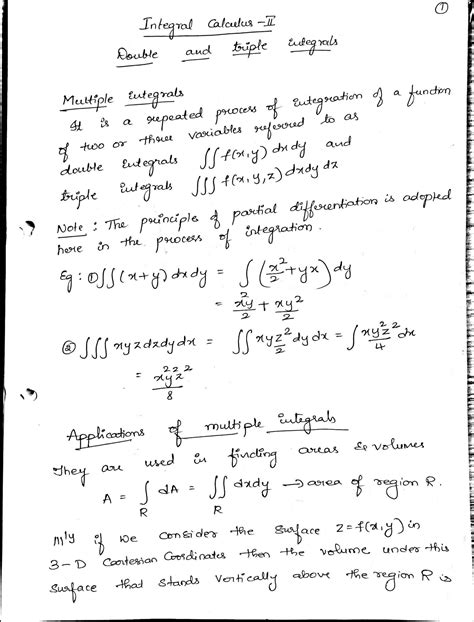 ①
Integral Calculus -II
Double and triple integrals
Multiple integrals
It is a repeated process of integration of a function
of two or three variables referred to as
double integrals ∬ f(x,y) dx dy and
triple integrals ∭ f(x,y,z) dx dy dz
Note : The principle of partial differentiation is adopted
here in the process of integration.
Eg : ① ∬ (x+y) dx dy = ∫ (x²/2 + yx) dy
= x²y/2 + xy²/2
② ∭ xyz dz dy dx = ∬ xy z²/2 dy dx = ∫ xy²z²/4 dx
= x²y²z²/8
Applications of multiple integrals
They are used in finding areas & volumes
A = ∫_R dA = ∬_R dx dy → area of region R.
|||ly if we consider the surface z = f(x,y) in
3-D Cartesian Coordinates then the volume under this
surface that stands vertically above the region R is